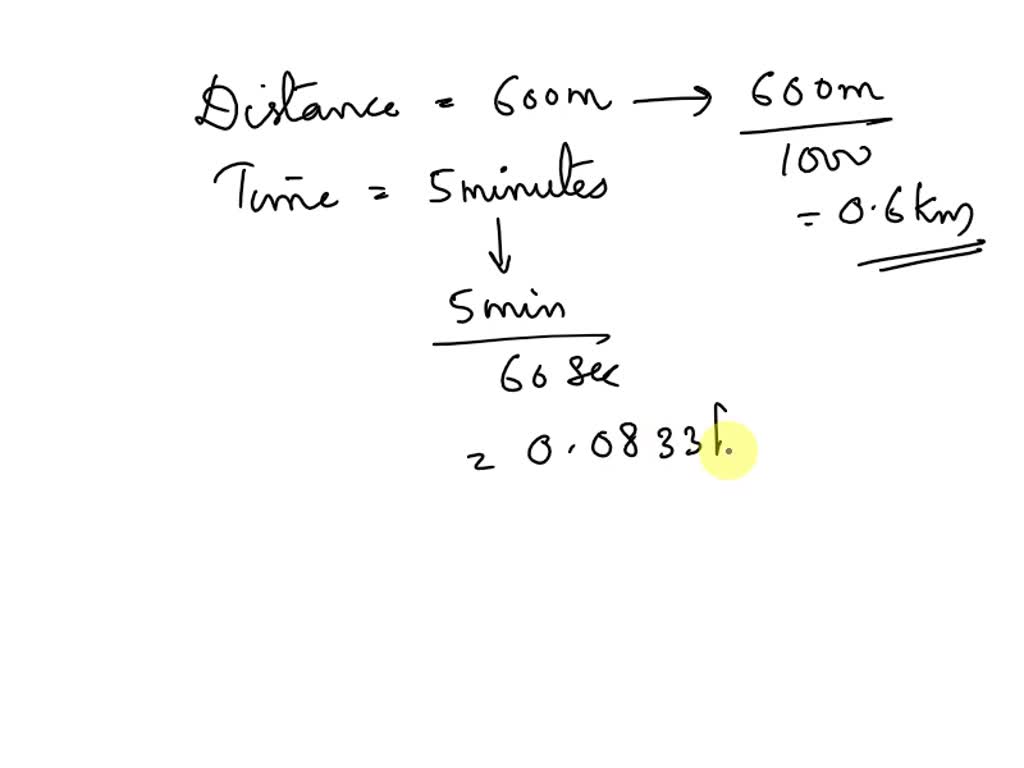 Distance = 600m → 600m
1000
= 0.6 km
Time = 5 minutes
↓
5 min
60 sec
= 0.0833